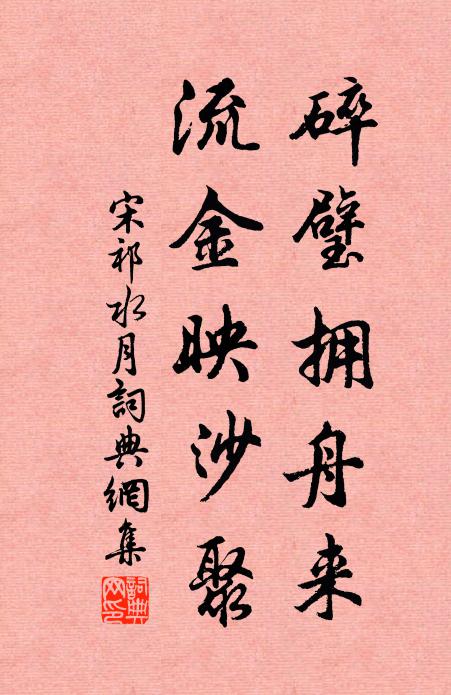 碎璧拥舟来
流金映沙聚
宋祁水月詞典網集
詞典网印